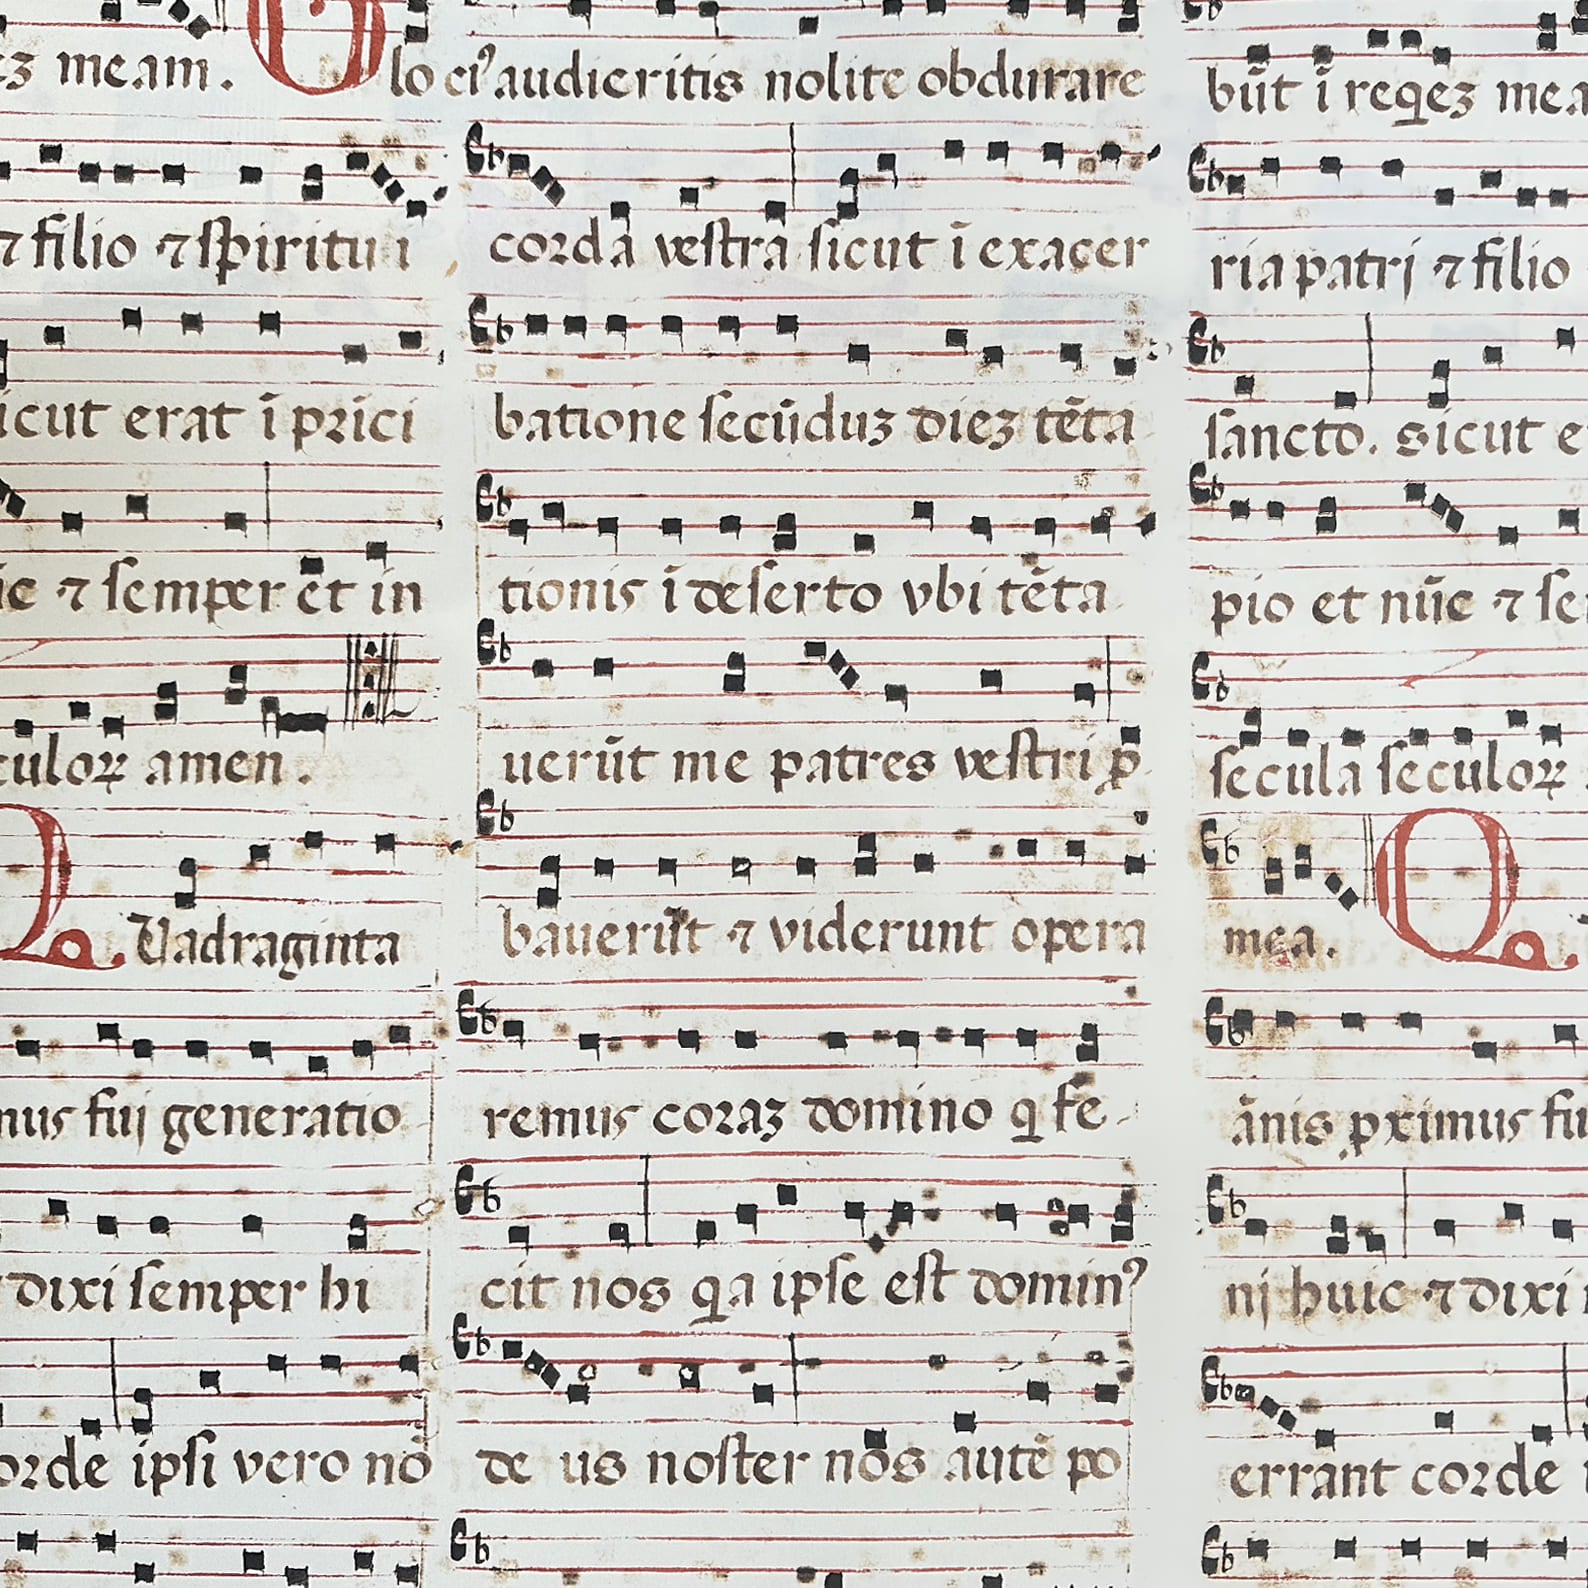 meam.
⁊ filio ⁊ spiritui
icut erat ī prici
⁊ semper et in
culoꝝ amen.
Vadraginta
fuj generatio
dixi semper hi
corde ipsi vero nō
lo ciꝰ audieritis nolite obdurare
corda vestra sicut ī exacer
batione secūduꝫ dieꝫ tēta
tionis ī deserto vbi tēta
uerūt me patres vestri ꝓ
bauerūt ⁊ viderunt opera
remus coraꝫ domino q fe
cit nos qa ipse est dominꝰ
de us noster nos autē po
būt ī reqeꝫ mea
ria patrj ⁊ filio
sancto. sicut e
pio et nūc ⁊ se
secula seculoꝝ
mea. Q
ānis ꝓximus fu
nj huic ⁊ dixi
errant corde